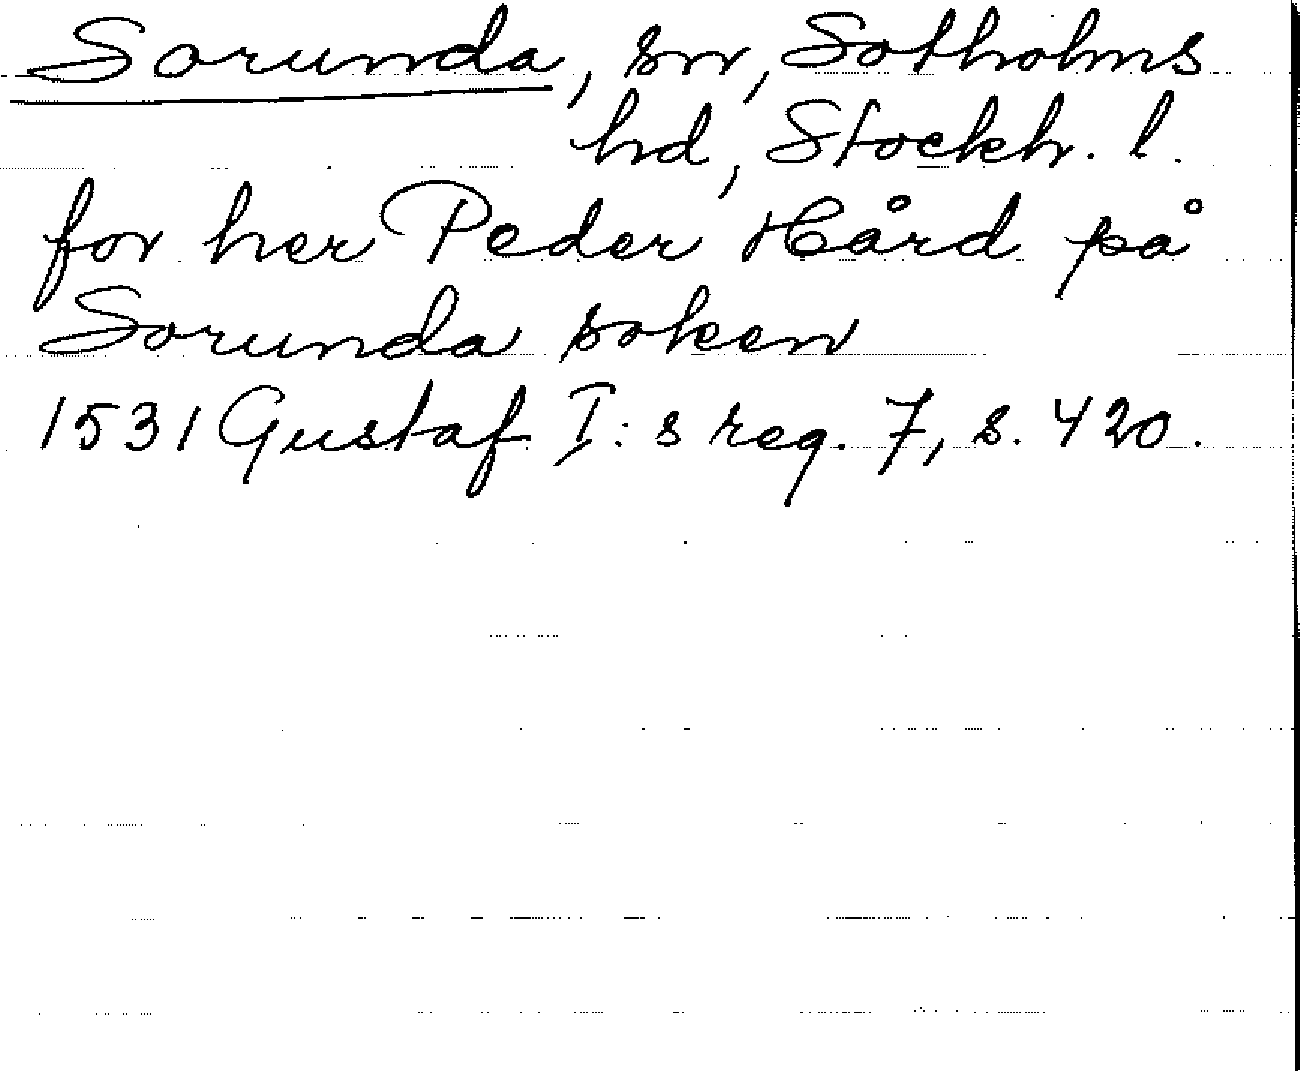 Sorunda, sn, Sotholms
hd, Stockh. l.
for her Peder Hård på
Sorunda soken
1531 Gustaf I:s reg. 7, s. 420.